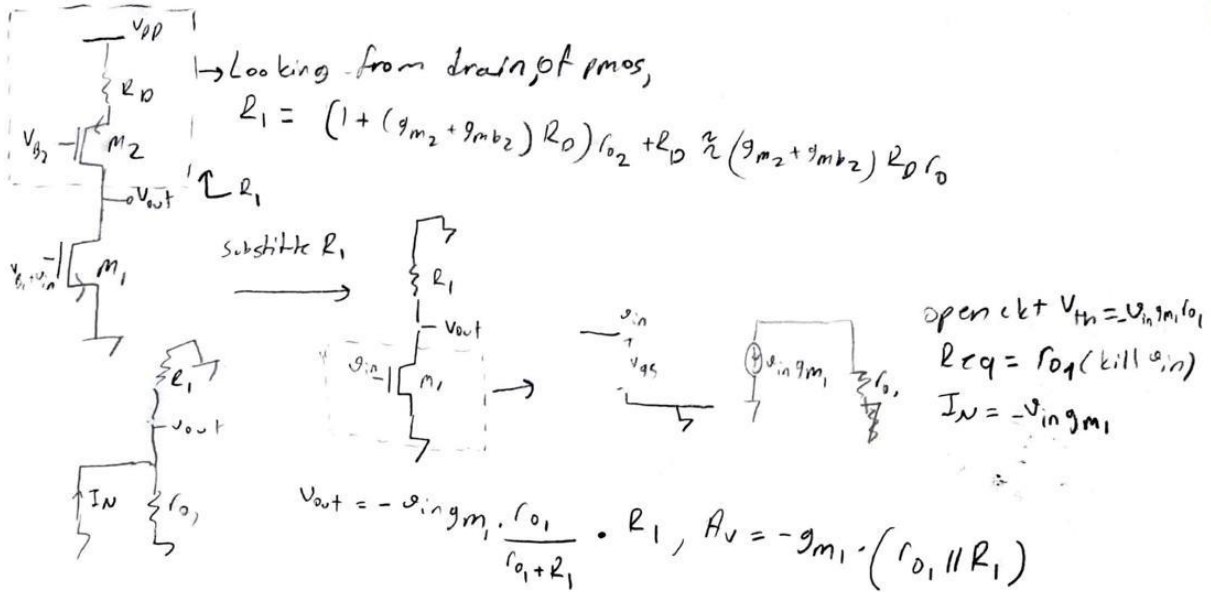 V_DD
R_D
V_B2
M2
Vout
R1
V_B1+v_in
M1
↳ Looking from drain, of pmos,
R1 = (1 + (gm2 + gmb2) R_D) ro2 + R_D ≈ (gm2 + gmb2) R_D ro
substitte R1
R1
Vout
vin
M1
vin
+
vgs
-
vin gm1
ro1
open ckt Vth = -vin gm1 ro1
Req = ro1 (kill vin)
I_N = -vin gm1
R1
vout
I_N
ro1
Vout = -vin gm1 · ro1/(ro1 + R1) · R1, Av = -gm1 · (ro1 || R1)